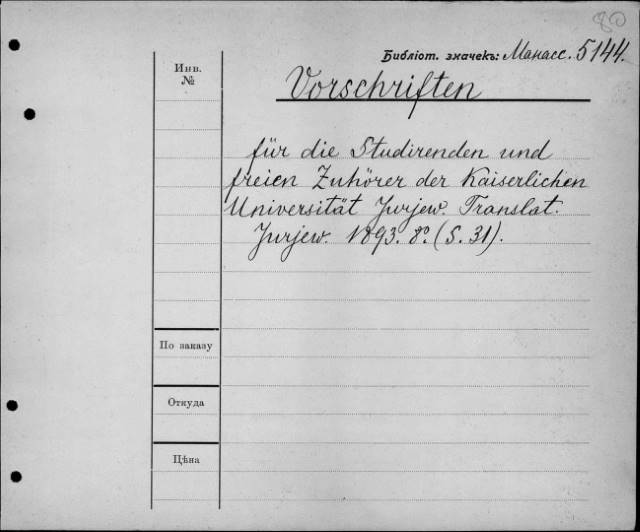 80
Библіот. значекъ: Манасс. 5144.
Инв.
№
Vorschriften
für die Studirenden und
freien Zuhörer der Kaiserlichen
Universität Jurjew. Translat.
Jurjew. 1893. 8º. (S. 31).
По заказу
Откуда
Цѣна